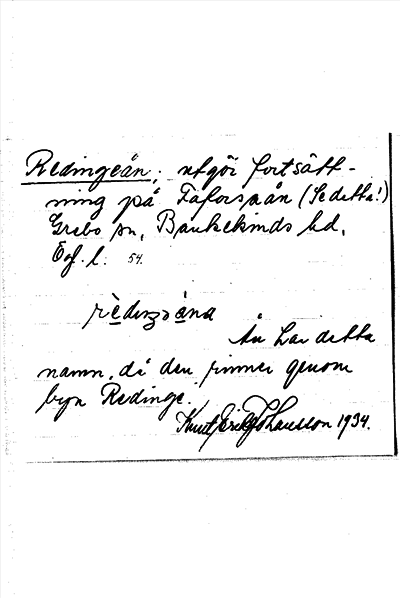 Redingeån, utgör fortsätt-
ning på Taforsaån (Se detta!)
Grebo sn, Bankekinds hd,
Ög. l. 54.
Ån har detta
namn, då den rinner genom
byn Redinge.
Knut Erik Johansson 1934.